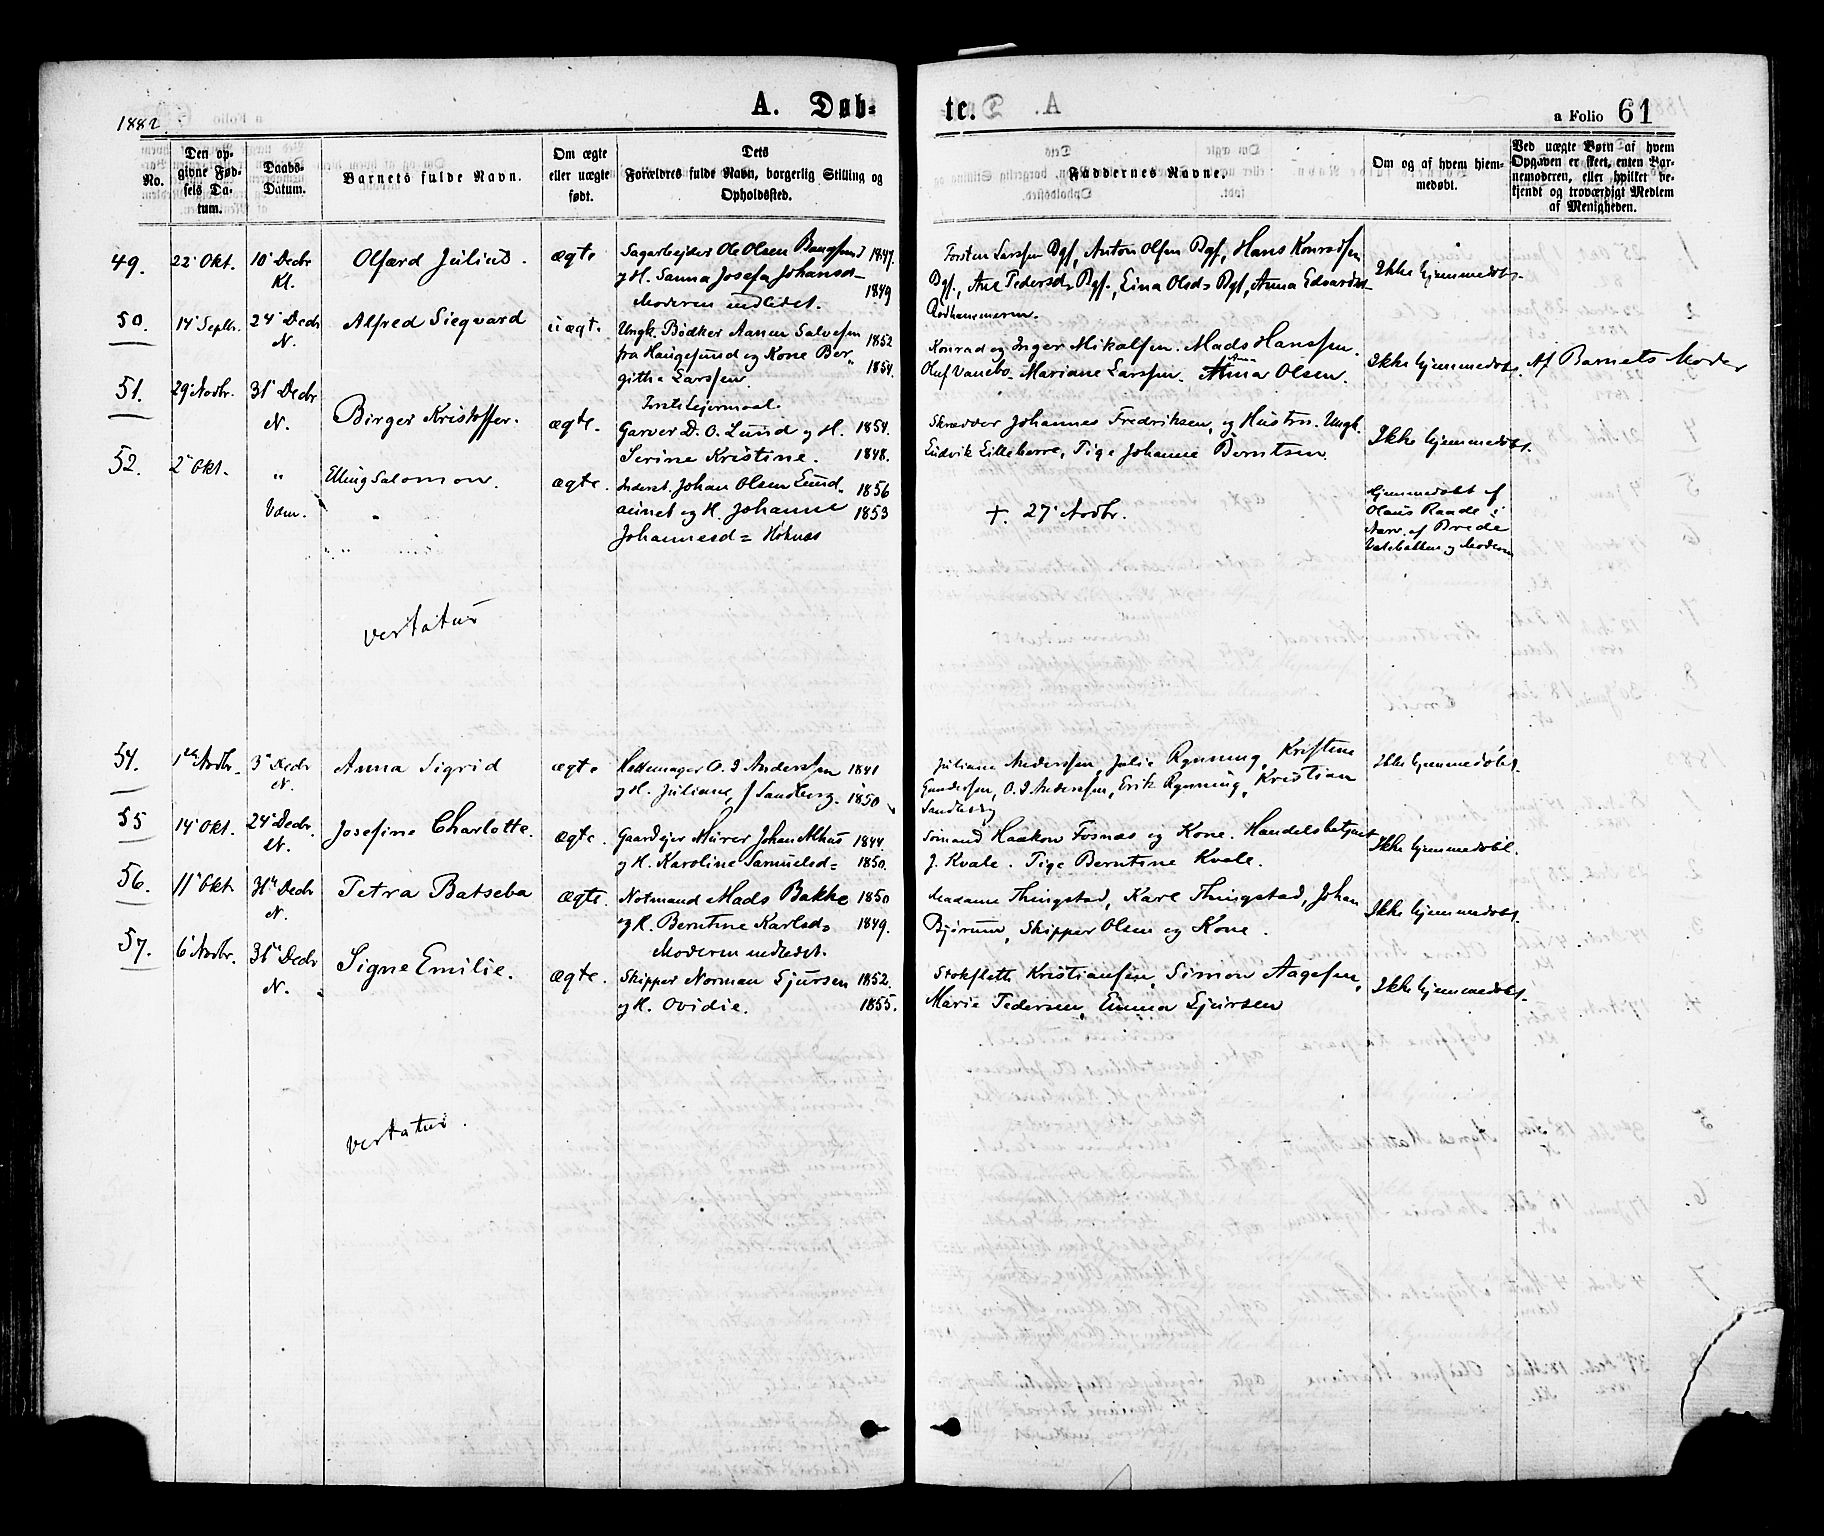 1882.
A. Døb-
te.
a Folio 61
No.
Den op-
givne Fød-
sels Da-
tum.
Daabs-
Datum.
Barnets fulde Navn.
Om ægte
eller uægte
født.
Dets
Forældres fulde Navn, borgerlig Stilling og
Opholdssted.
Faddernes Navne.
Om og af hvem hjem-
medøbt.
Ved uægte Børn af hvem
Opgaven er skeet, enten Bar-
nemoderen, eller hvilket be-
kjendt og troværdigt Medlem
af Menigheden.
49. 22 Okt. 10 Decbr Kl. Olfærd Julius. ægte
Sagarbejder Ole Olsen Bangsund 1847.
og H. Sanna Josefa Johansd- 1849
Moderen indledet.
Torsten Larssen Bgs, Anton Olsen Bgs, Hans Konradsen
Bgs., Ane Pedersd= Bgs., Eina Olsd= Bgs, Anna Edvardsd-
Rødhammeren.
Ikke hjemmedøbt.
50. 14 Septbr. 24 Decbr N. Alfred Siegvard uægt.
Ungk. Bødker Aanen Salvesen 1852
fra Haugesund og Kone Ber- 1854.
githe Larssen.
Første Lejermaal.
Konrad og Inger Mikalsen. Mads Hanssen.
Oluf Vanebo. Mariane Larssen. Anna Olsen.
Ikke hjemmedøbt. Af Barnets Moder
51. 29 Novbr. 31 Decbr N. Birger Kristoffer. ægte.
Garver D. O. Lund og H. 1854.
Serine Kristine. 1848.
Skrædder Johannes Fredriksen, og Hustru. Ungk.
Ludvik Lilleberre, Pige Johanne Berntsen.
Ikke hjemmedøbt.
52. 2 Okt. " Udm. Elling Salomon. ægte.
Inderst. Johan Olsen Lund- 1856
aunet og H. Johanne 1853
Johannesd= Høknæs
+. 27 Novbr.
Hjemmedøbt af
Olaus Raade i
Nærv. af Brede
og Moderen
vertatur
54. 1 Novbr. 3 Decbr N. Anna Sigrid ægte
Hattemager O. J Anderssen 1841
og H. Juliane, f Sandberg. 1850
Juliane Anderssen, Julie Rynning, Kristine
Gundersen, O. J Anderssen, Erik Rynning, Kristian
Sandberg
Ikke hjemmedøbt.
55 14 Okt. 24 Decbr. N. Josefine Charlotte. ægte.
Gaardejer Murer Johan Althus 1844.
og H. Karoline Samuelsd= 1850.
Sømand Haakon Fosnæs og Kone. Handelsbetjent
J. Kvale. Pige Berntine Kvale.
Ikke hjemmedøbt.
56. 11 Okt 31 Decbr N. Petra Batseba ægte.
Notmand Mads Bakke 1850
og H. Berntine Karlsd= 1849.
Moderen indledet.
Madame Thingstad, Karl Thingstad, Johan
Bjørum, Skipper Olsen og Kone.
Ikke hjemmedøbt.
57. 6 Novbr. 31 Decbr N. Signe Emilie. ægte.
Skipper Norman Sjursen 1852.
og H. Ovidie. 1855.
Stokfleth Kristiansen, Simon Aagesen,
Marie Pedersen, Emma Sjursen
Ikke hjemmedøbt.
vertatur.